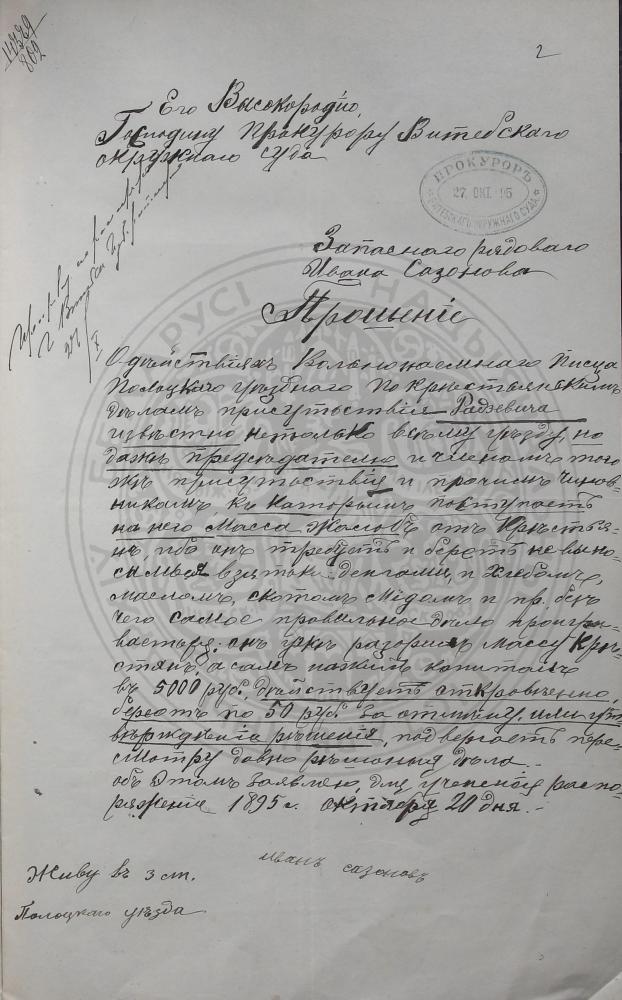 2
Его Высокородію,
Господину Прокурору Витебскаго
окружнаго суда
ПРОКУРОРЪ
27 ОКТ. 95
ВИТЕБСКАГО ОКРУЖНАГО СУДА
Запаснаго рядоваго
Ивана Сазонова
Прошеніе
О дѣйствіяхъ Вольнонаемнаго Писца
Полоцкаго уѣзднаго По Крестьянскимъ
дѣламъ присутствія Радзевича
извѣстно нетолько всему уѣзду, но
даже предсѣдателю и членамъ того
же присутствія и прочимъ Чинов-
никамъ, къ которымъ поступаетъ
на него Масса Жалобъ отъ Крестья-
нъ, ибо онъ требуетъ и беретъ невыно-
симыя взятки деньгами, и Хлебомъ,
масломъ, скотомъ Мёдомъ и пр. безъ
чего самое правильное дѣло проигры-
вается: онъ уже разорилъ Массу Кре-
стянъ, а самъ нажилъ капиталъ
въ 5000 руб., дѣйствуетъ откровенно,
беретъ по 50 руб. за отмѣну, или ут-
вержденія рѣшенія, подвергаетъ пере-
смотру давно рѣшоныя дѣла
объ Этомъ заявляю, для учененія распо-
ряженія 1895 г. октября 20 дня.
Иванъ Сазоновъ
Живу въ 3 ст.
Полоцкаго уѣзда